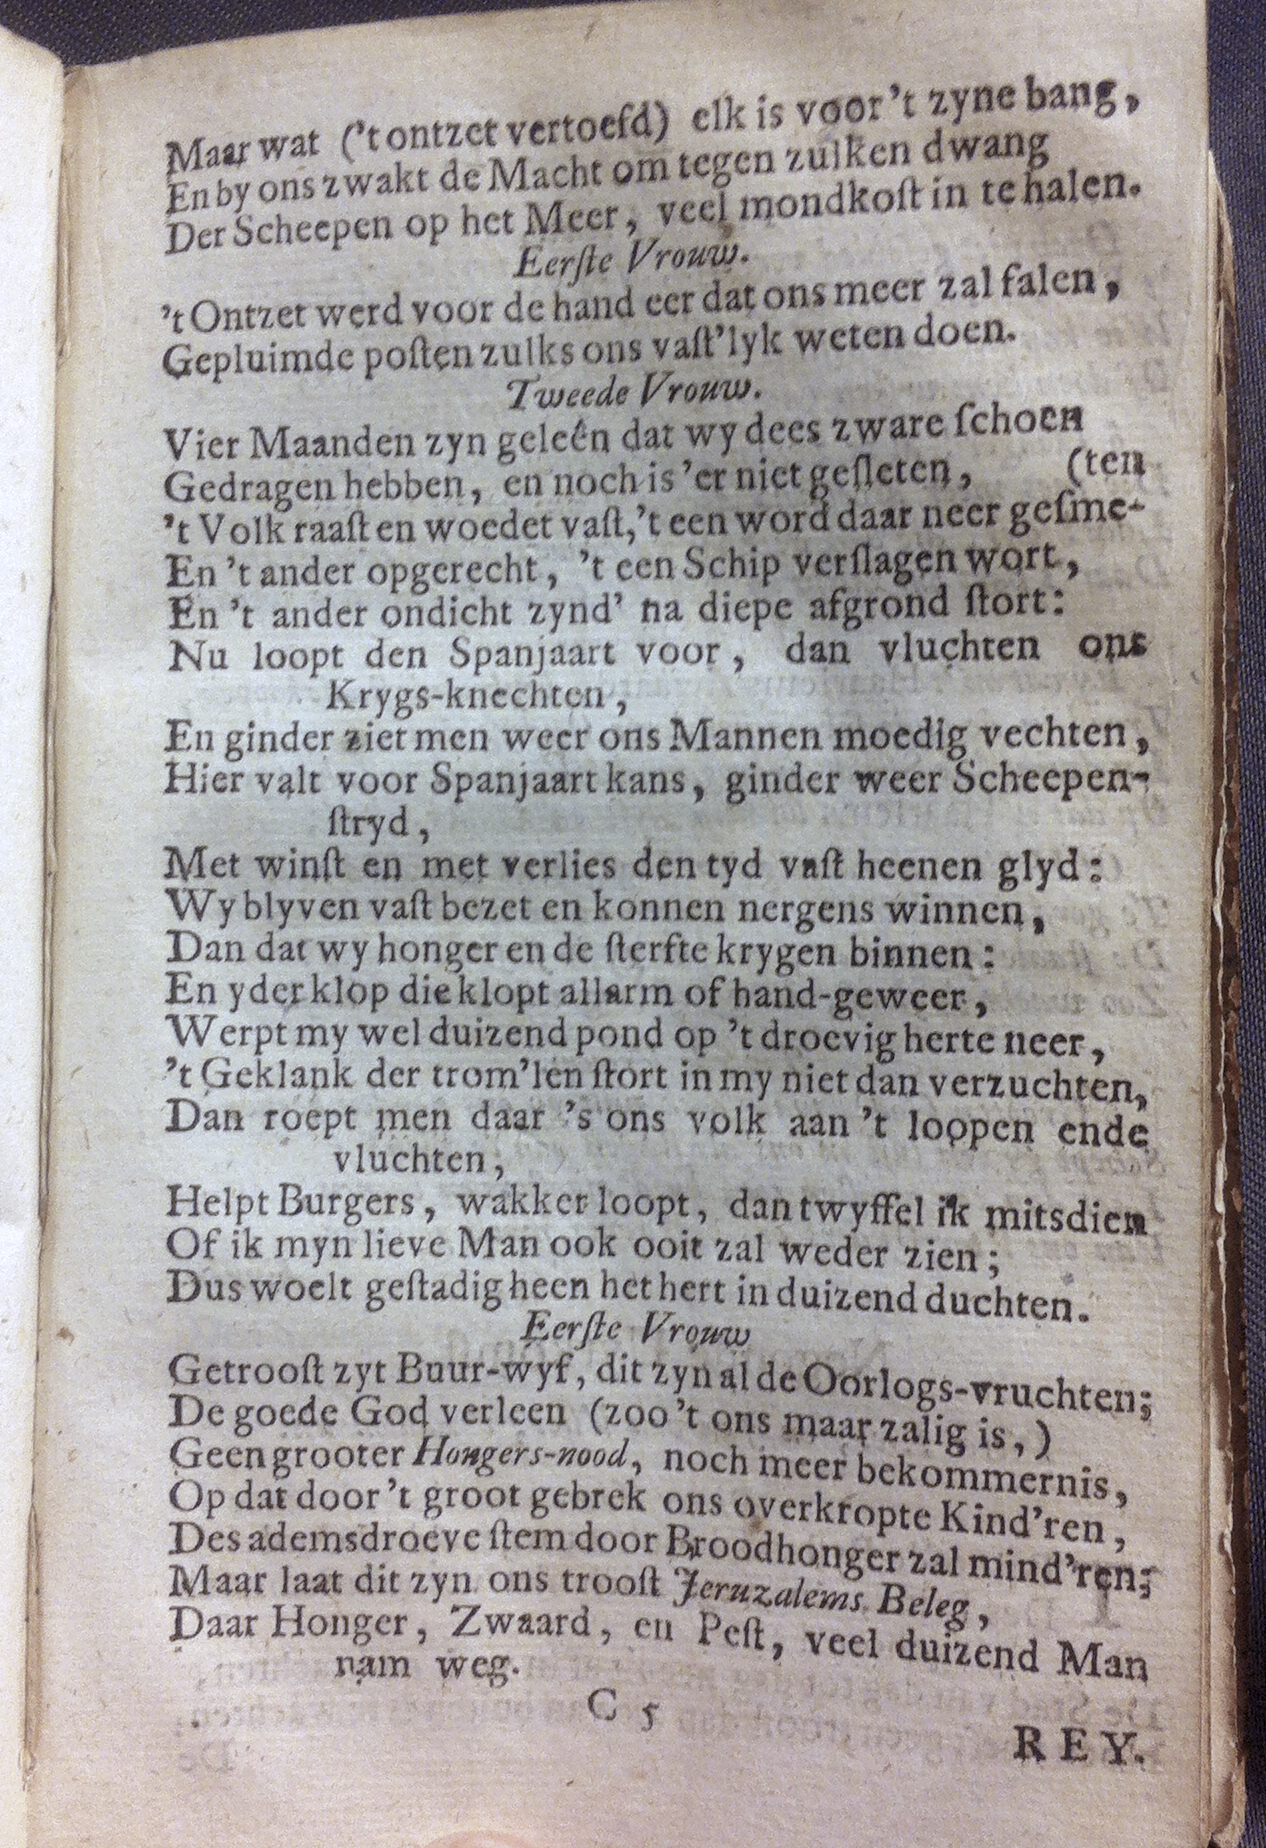 Maar wat ('t ontzet vertoefd) elk is voor 't zyne bang,
En by ons zwakt de Macht om tegen zulken dwang
Der Scheepen op het Meer, veel mondkoſt in te halen.
Eerſte Vrouw.
't Ontzet werd voor de hand eer dat ons meer zal falen,
Gepluimde poſten zulks ons vaſt'lyk weten doen.
Tweede Vrouw.
Vier Maanden zyn geleên dat wy dees zware ſchoen
Gedragen hebben, en noch is 'er niet geſleten, (ten
't Volk raaſt en woedet vaſt, 't een word daar neer geſme-
En 't ander opgerecht, 't een Schip verſlagen wort,
En 't ander ondicht zynd' na diepe afgrond ſtort:
Nu loopt den Spanjaart voor, dan vluchten ons
Krygs-knechten,
En ginder ziet men weer ons Mannen moedig vechten,
Hier valt voor Spanjaart kans, ginder weer Scheepen-
ſtryd,
Met winſt en met verlies den tyd vaſt heenen glyd:
Wy blyven vaſt bezet en konnen nergens winnen,
Dan dat wy honger en de ſterfte krygen binnen:
En yder klop die klopt allarm of hand-geweer,
Werpt my wel duizend pond op 't droevig herte neer,
't Geklank der trom'len ſtort in my niet dan verzuchten,
Dan roept men daar 's ons volk aan 't loopen ende
vluchten,
Helpt Burgers, wakker loopt, dan twyffel ik mitsdien
Of ik myn lieve Man ook ooit zal weder zien;
Dus woelt geſtadig heen het hert in duizend duchten.
Eerſte Vrouw
Getrooſt zyt Buur-wyf, dit zyn al de Oorlogs-vruchten;
De goede God verleen (zoo 't ons maar zalig is,)
Geen grooter Hongers-nood, noch meer bekommernis,
Op dat door 't groot gebrek ons overkropte Kind'ren,
Des adems droeve ſtem door Broodhonger zal mind'ren;
Maar laat dit zyn ons trooſt Jeruzalems Beleg,
Daar Honger, Zwaard, en Peſt, veel duizend Man
nam weg.
C 5
REY.